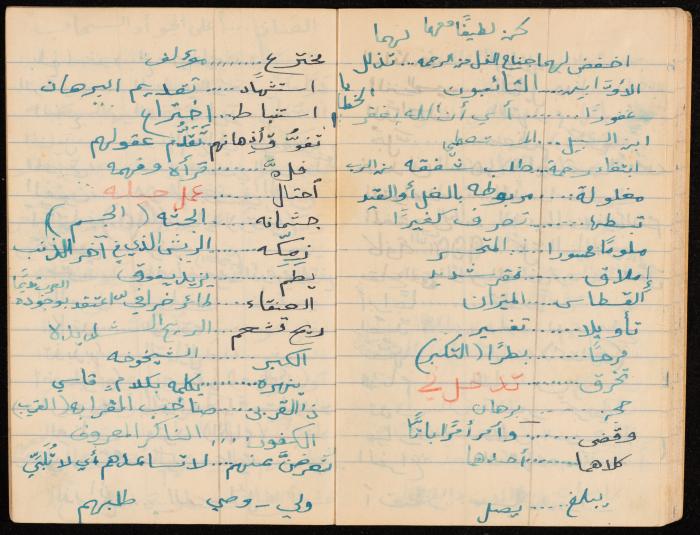 كن لطيفًا معهما لهما
اخفض لهما جناح الذل من الرحمة .... تذلل
الأوّابين .... التائبون
غفورًا ....
ابن السبيل ....
ابتغاء رحمة .. طلب شفقة من الرب
مغلولة .... مربوطة بالغل أو القيد
تبسطها ....
ملومًا محسورا .... المتحسر
إملاق .... فقر شديد
القسطاس .... الميزان
تأويلا .... تفسير
مرحًا .... بطرًا (التكبر)
تخرق ....
.... برهان
وقضى .... وأمر أمرًا باتًّا
كلاهما .... أحدهما
يبلغ .... يصل
مخترع .... مؤلف
استشهاد .... تقديم البرهان
استنباط .... اختراع
تفوّق أذهانهم تَقَدُّم عقولهم
.... قرأه وفهمه
احتال .... عمل حيلة
جثمانه .... الجثة (الجسم)
زمكّه .... الريش الذي في آخر الذنب
يطمّ .... يزيد يفوق
العنقاء .... طائر خرافي اعتقد بوجوده
ريح قشعم
الكبر .... الشيخوخة
ينهره .... يكلمه بكلام قاسي
ذا القربى .... صاحب القرابة (القريب)
الكفور .... الناكر المعروف
تعرضنّ عنهم .... لا تساعدهم أي لا تُلَبّي
ولي - وصي طلبهم